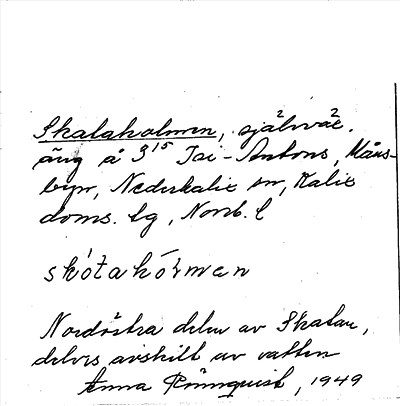 Skalaholmen, självva²e.
äng å 3¹⁵ Isi-Antons, Måns-
byn, Nederkalix sn, Kalix
doms. lg, Norrb. l
skótahólmen
Nordöstra delen av Skatan,
delvis avskilt av vatten
Anna Rönnquist, 1949